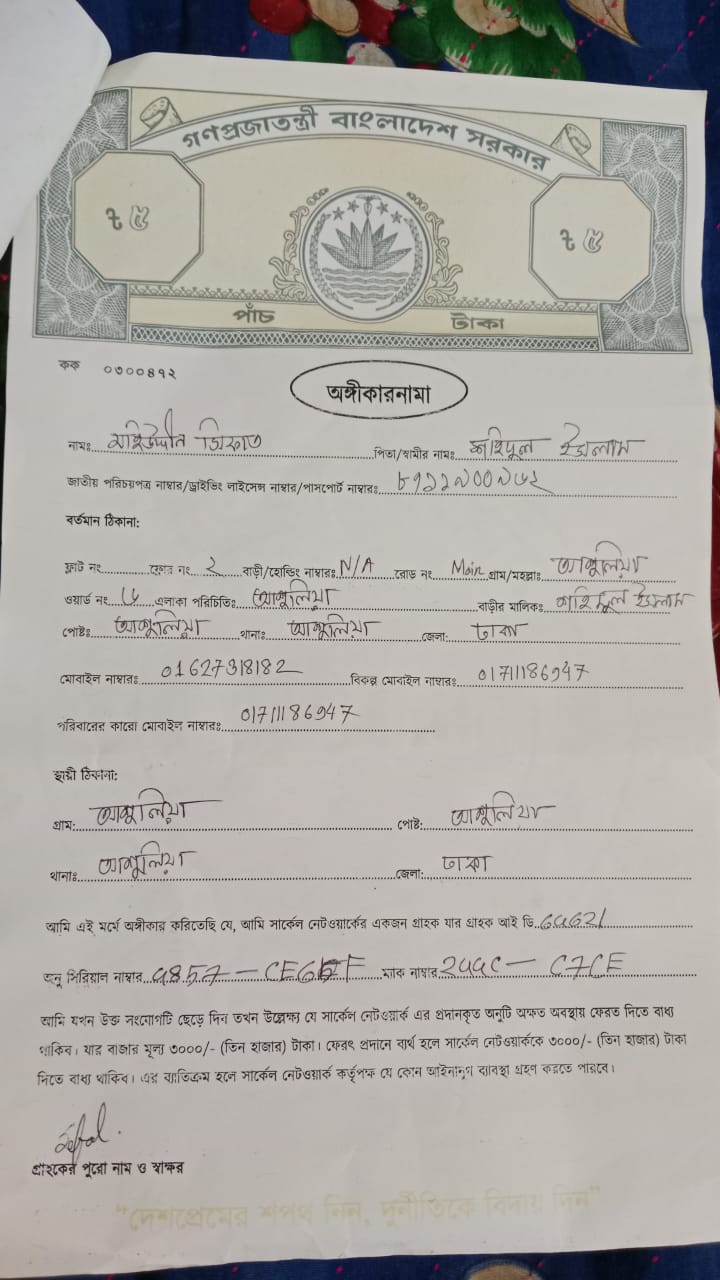 গণপ্রজাতন্ত্রী বাংলাদেশ সরকার
৳ ৫ ৳ ৫
পাঁচ টাকা
কক ০৩০০৪১২
অঙ্গীকারনামা
নামঃ মহিউদ্দীন সিফাত পিতা/স্বামীর নামঃ শহিদুল ইসলাম
জাতীয় পরিচয়পত্র নাম্বার/ড্রাইভিং লাইসেন্স নাম্বার/পাসপোর্ট নাম্বারঃ
বর্তমান ঠিকানা:
ফ্লাট নং ফ্লোর নং ২ বাড়ী/হোল্ডিং নাম্বারঃ N/A রোড নং Main গ্রাম/মহল্লাঃ আশুলিয়া
ওয়ার্ড নং ৬ এলাকা পরিচিতিঃ আশুলিয়া বাড়ীর মালিকঃ শহিদুল ইসলাম
পোষ্টঃ আশুলিয়া থানাঃ আশুলিয়া জেলা: ঢাকা
মোবাইল নাম্বারঃ 01627318182 বিকল্প মোবাইল নাম্বারঃ 01711186947
পরিবারের কারো মোবাইল নাম্বারঃ 01711186947
স্থায়ী ঠিকানা:
গ্রাম: আশুলিয়া পোষ্ট: আশুলিয়া
থানাঃ আশুলিয়া জেলা: ঢাকা
আমি এই মর্মে অঙ্গীকার করিতেছি যে, আমি সার্কেল নেটওয়ার্কের একজন গ্রাহক যার গ্রাহক আই ডি
অনু সিরিয়াল নাম্বার ম্যাক নাম্বার
আমি যখন উক্ত সংযোগটি ছেড়ে দিব তখন উল্লেক্ষ্য যে সার্কেল নেটওয়ার্ক এর প্রদানকৃত অনুটি অক্ষত অবস্থায় ফেরত দিতে বাধ্য
থাকিব। যার বাজার মূল্য ৩০০০/- (তিন হাজার) টাকা। ফেরৎ প্রদানে ব্যর্থ হলে সার্কেল নেটওয়ার্ককে ৩০০০/- (তিন হাজার) টাকা
দিতে বাধ্য থাকিব। এর ব্যতিক্রম হলে সার্কেল নেটওয়ার্ক কর্তৃপক্ষ যে কোন আইনানুগ ব্যবস্থা গ্রহণ করতে পারবে।
গ্রাহকের পুরো নাম ও স্বাক্ষর
“দেশপ্রেমের শপথ নিন, দুর্নীতিকে বিদায় দিন”